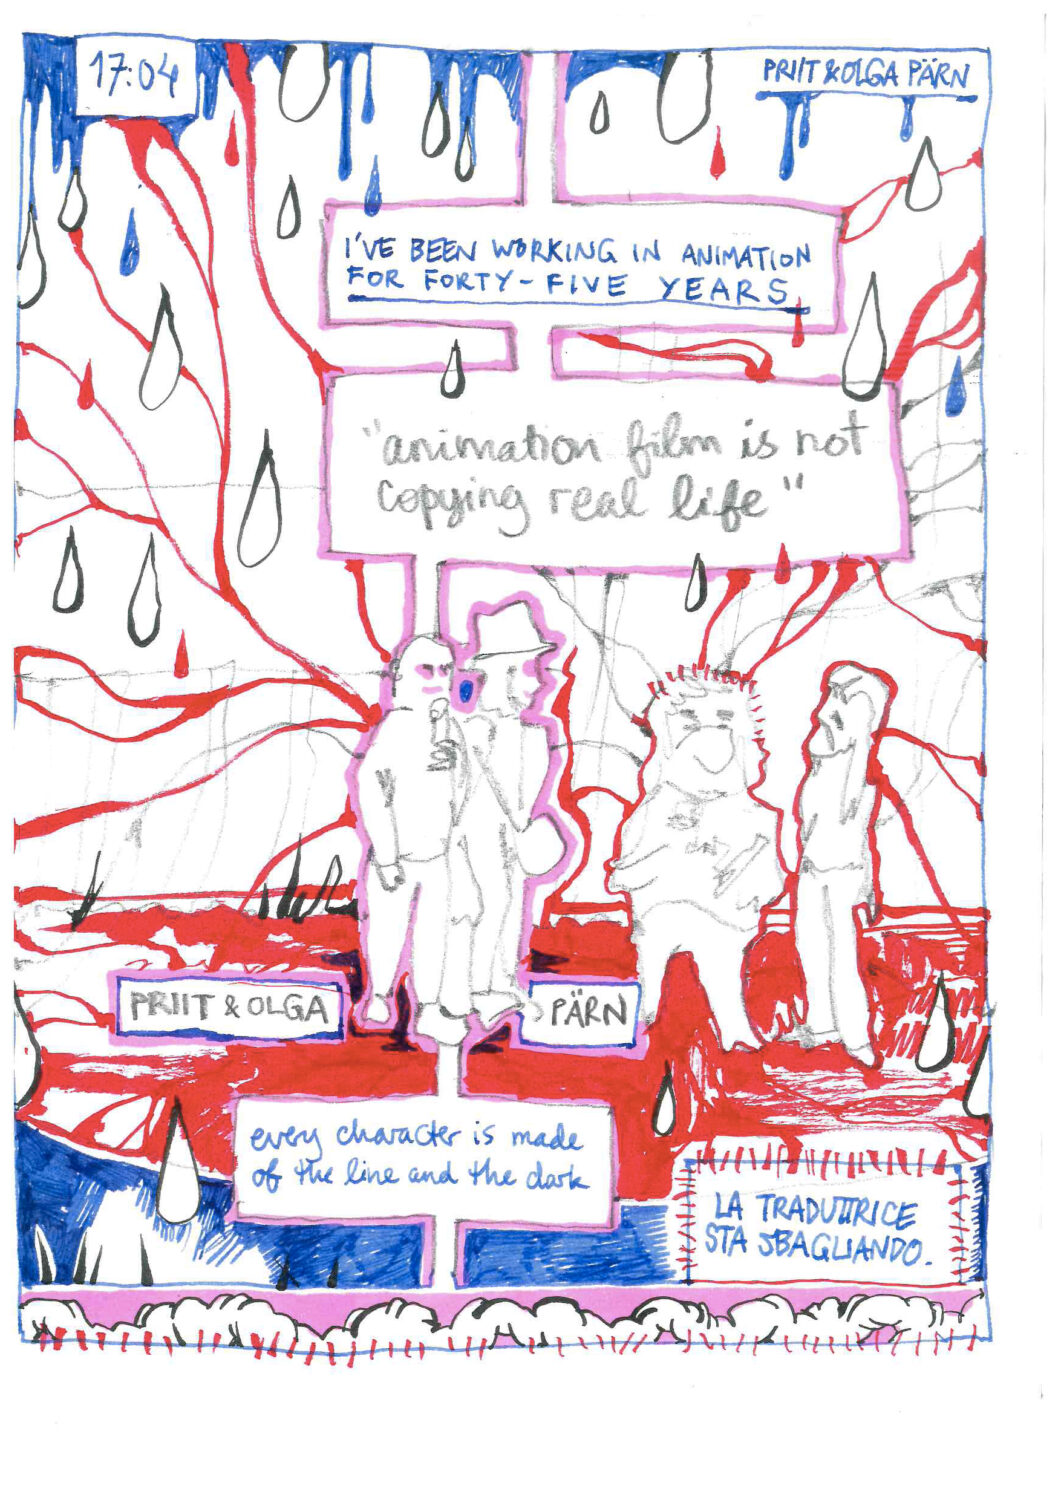 17:04
PRIIT & OLGA PÄRN
I'VE BEEN WORKING IN ANIMATION
FOR FORTY-FIVE YEARS
"animation film is not
copying real life"
PRIIT & OLGA
PÄRN
every character is made
of the line and the dark
LA TRADUTTRICE
STA SBAGLIANDO.